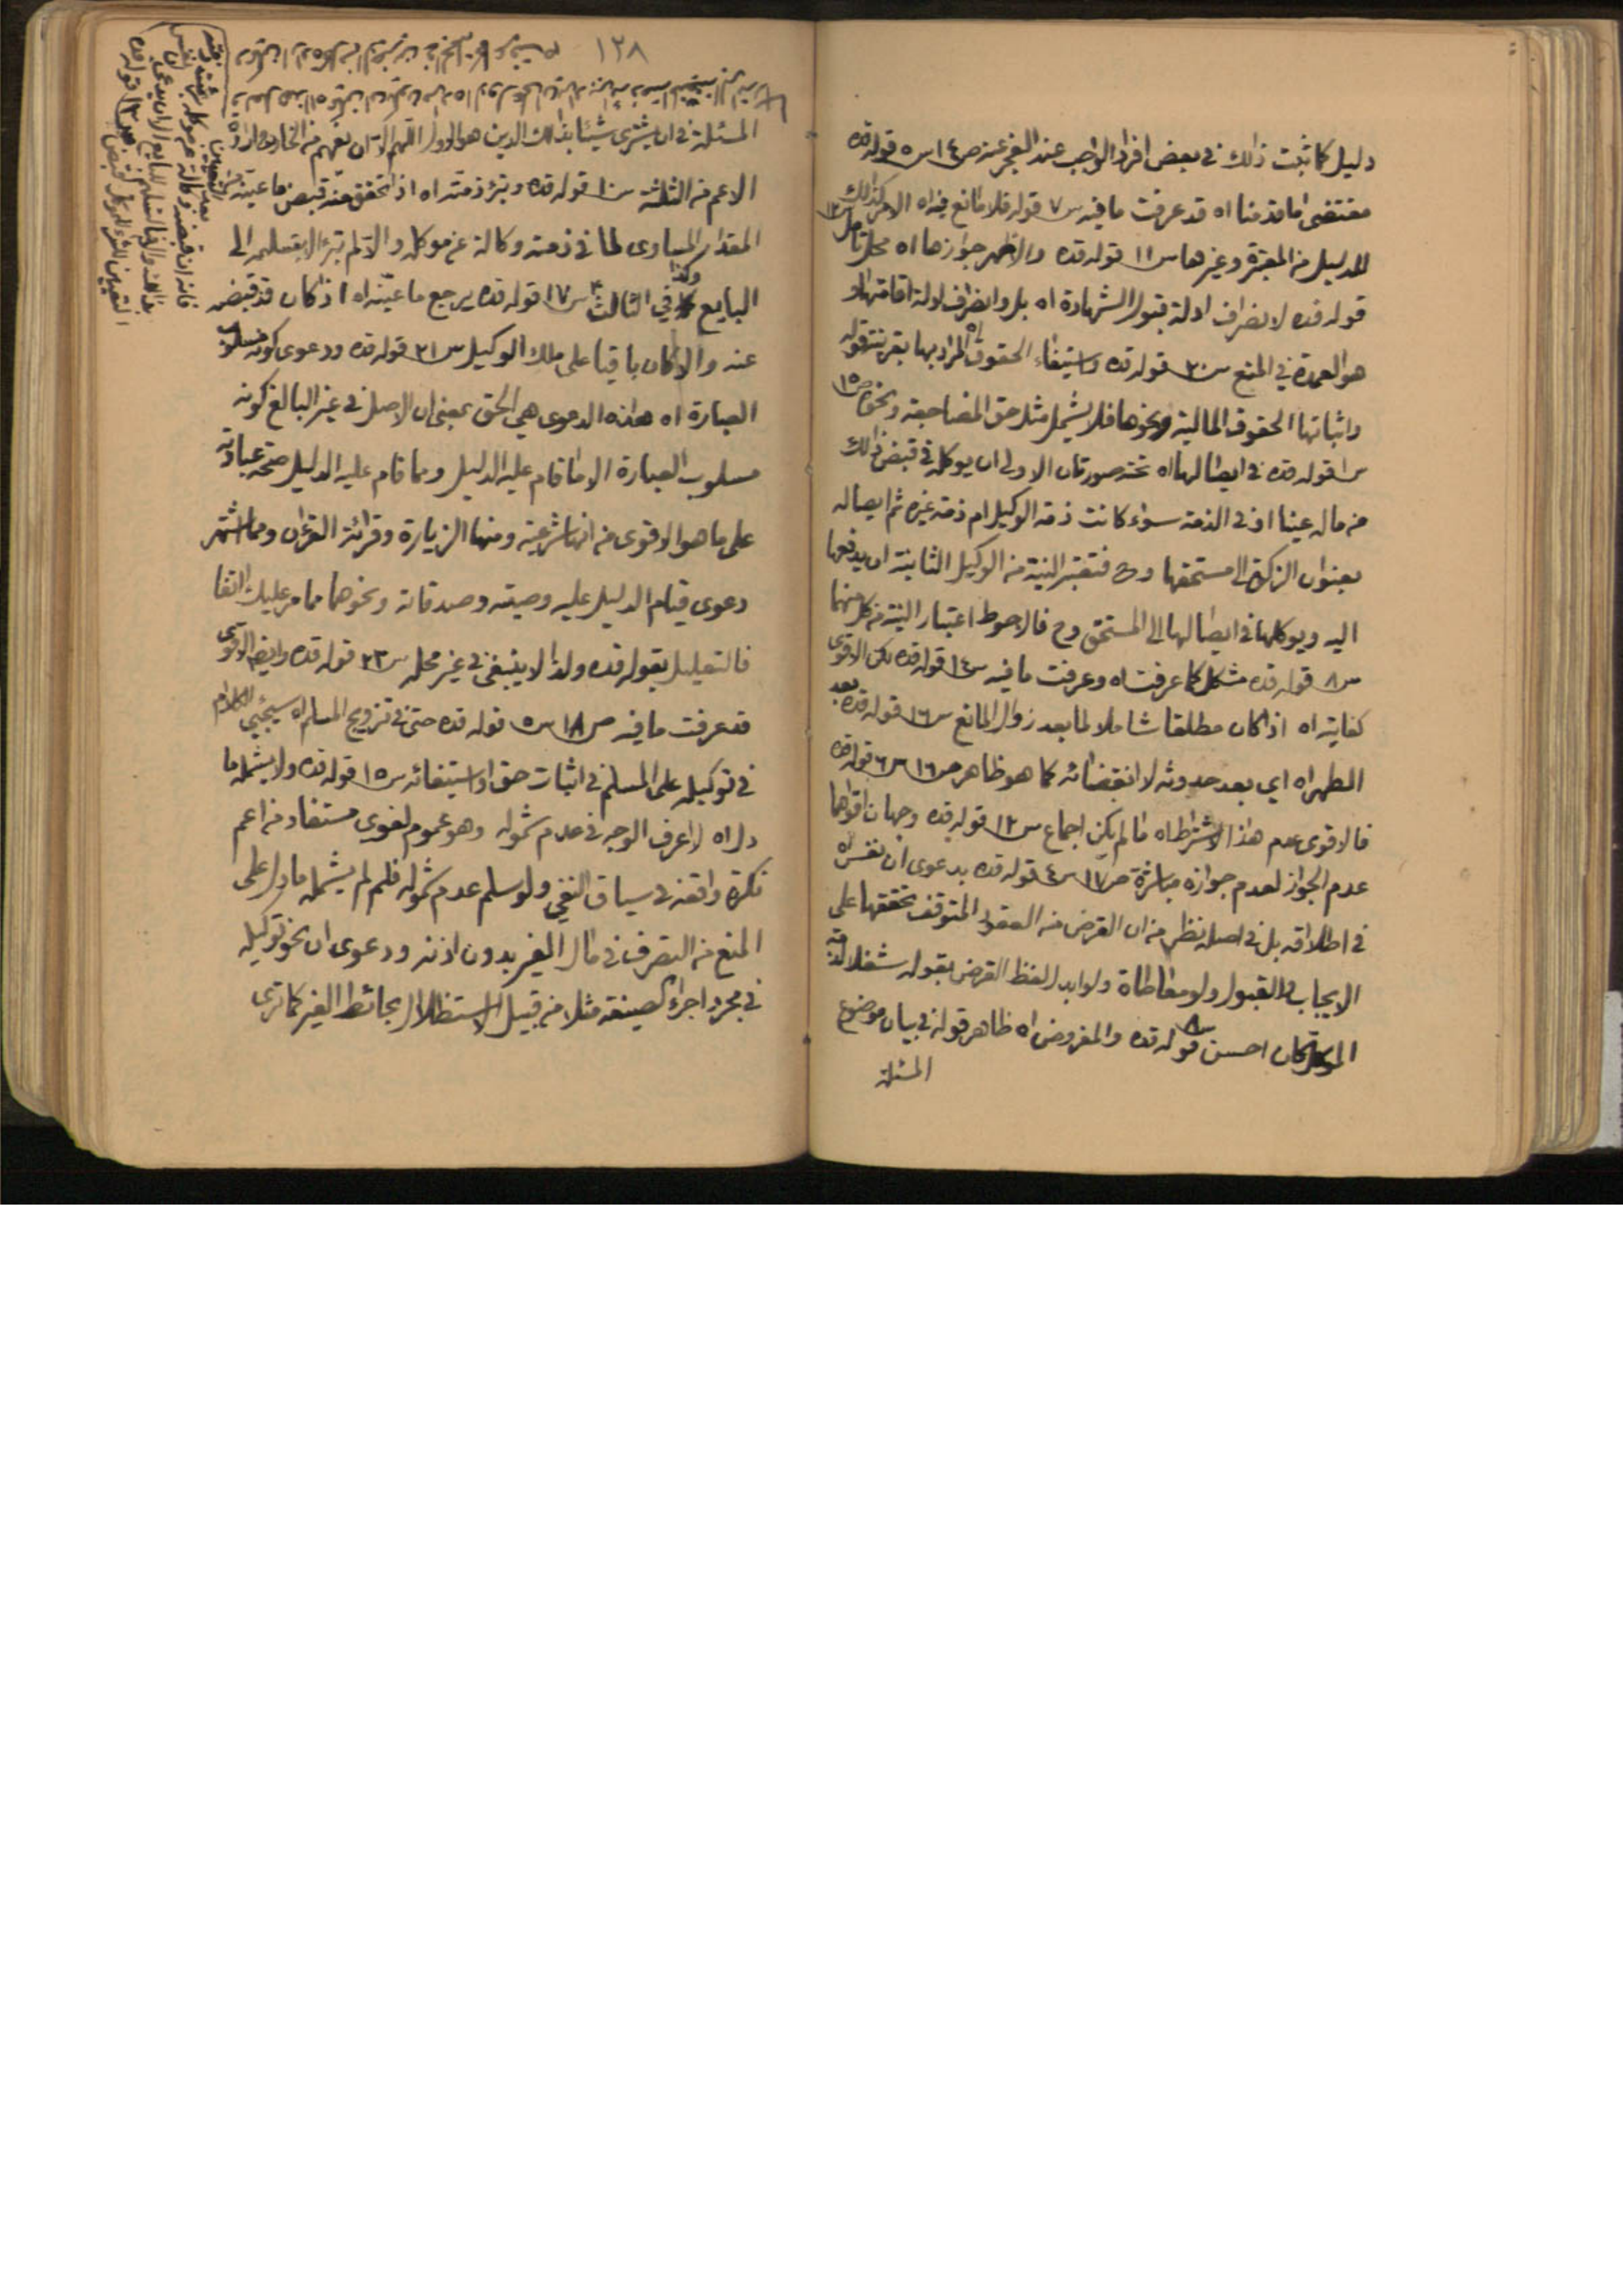 دليل كما ثبت ذلك في بعض افراد الواجب عند العجز عنه ص١٤ س٥ قوله قده
مقتضى ما قدمنا اه قد عرفت ما فيه س٧ قوله فلا مانع فيه اه الامر كذلك
للدليل من المعتبرة وغيرها س١١ قوله قده والاظهر جوازها اه محل تأمل س١٢
قوله قده لانصراف ادلة قبول الشهادة اه بل وانصراف ادلة اقامتها و
هو العمدة في المنع س٢٠ قوله قده واستيفاء الحقوق اه المراد بها بقرينة قوله
واثباتها الحقوق المالية ونحوها فلا يشمل مثل حق المضاجعة ونحوه ص١٥
س١ قوله قده في ايصالها اه تحته صورتان الاولى ان يوكله في قبض ذلك
من ماله عينا او في الذمة سواء كانت ذمة الوكيل ام ذمة غيره ثم ايصاله
بعنوان الزكوة الى مستحقها وح فتعتبر النية من الوكيل الثانية ان يدفعها
اليه ويوكله في ايصالها الى المستحق وح فالاحوط اعتبار النية من كل منهما
س٨ قوله قده مشكل كما عرفت اه وعرفت ما فيه س١٤ قوله قده لكن الاقوى
كفايته اه اذا كان مطلقا شاملا لما بعد زوال المانع س١٦ قوله قده بعد
الطهر اه اي بعد حدوثه لا انقضائه كما هو ظاهر ص١٦ س٦ قوله قده
فالاقوى عدم هذا الاشتراط اه ما لم يكن اجماع س١٢ قوله قده وجهان اقواهما
عدم الجواز لعدم جوازه مباشرة ص١٧ س٤ قوله قده بدعوى ان نفس اه
في اطلاقه بل في اصله نظر من ان القرض من العقود المتوقف تحققها على
الايجاب والقبول ولو معاطاة ولو ابدل لفظ القرض بقوله شغلا لذمة
الموكل كان احسن س٨ قوله قده والمفروض اه ظاهر قوله في بيان موضوع
المسئلة
١٢٨
المسئلة في ان يشترى شيئا بذلك الدين هو الاول اللهم الا ان يفهم من الخارج ارادة
الاعم من الثلثة س١٠ قوله قده وتبرء ذمته اه اذا تحقق منه قبض ما عينه من
المقدار المساوى لما في ذمته وكالة عن موكله والا لم تبرء الا بتسليمه الى
البايع وكذا في الثالث س١٧ قوله قده يرجع ما عينه اه اذا كان قد قبضه
عنه والا كان باقيا على ملك الوكيل س٢١ قوله قده ودعوى كونه مسلوب
العبارة اه هذه الدعوى هي الحق بمعنى ان الاصل في غير البالغ كونه
مسلوب العبارة الا ما قام عليه الدليل ومما قام عليه الدليل صحة عباداته
على ما هو الاقوى من انها شرعية ومنها الزيارة وقرائة القرءان ومما اشتهر
دعوى قيام الدليل عليه وصيته وصدقاته ونحوهما مما مر عليك انفا
فالتعليل بقوله قده ولذا لا ينبغى في غير محله س٢٣ قوله قده وايضا الاقوى
قد عرفت ما فيه ص١٨ س٥ قوله قده حتى في تزويج المسلم اه سيجيئ الكلام
في توكيله على المسلم في اثبات حق او استيفائه س١٥ قوله قده ولا يشمله ما
دل اه لا اعرف الوجه في عدم شموله وهو عموم لغوى مستفاد من اعم
نكرة واقعة في سياق النفي ولو سلم عدم شموله فلم لم يشمله ما دل على
المنع من التصرف في مال الغير بدون اذنه ودعوى ان نحو توكيله
في مجرد اجراء الصيغة مثلا من قبيل الاستظلال بحائط الغير كما ترى